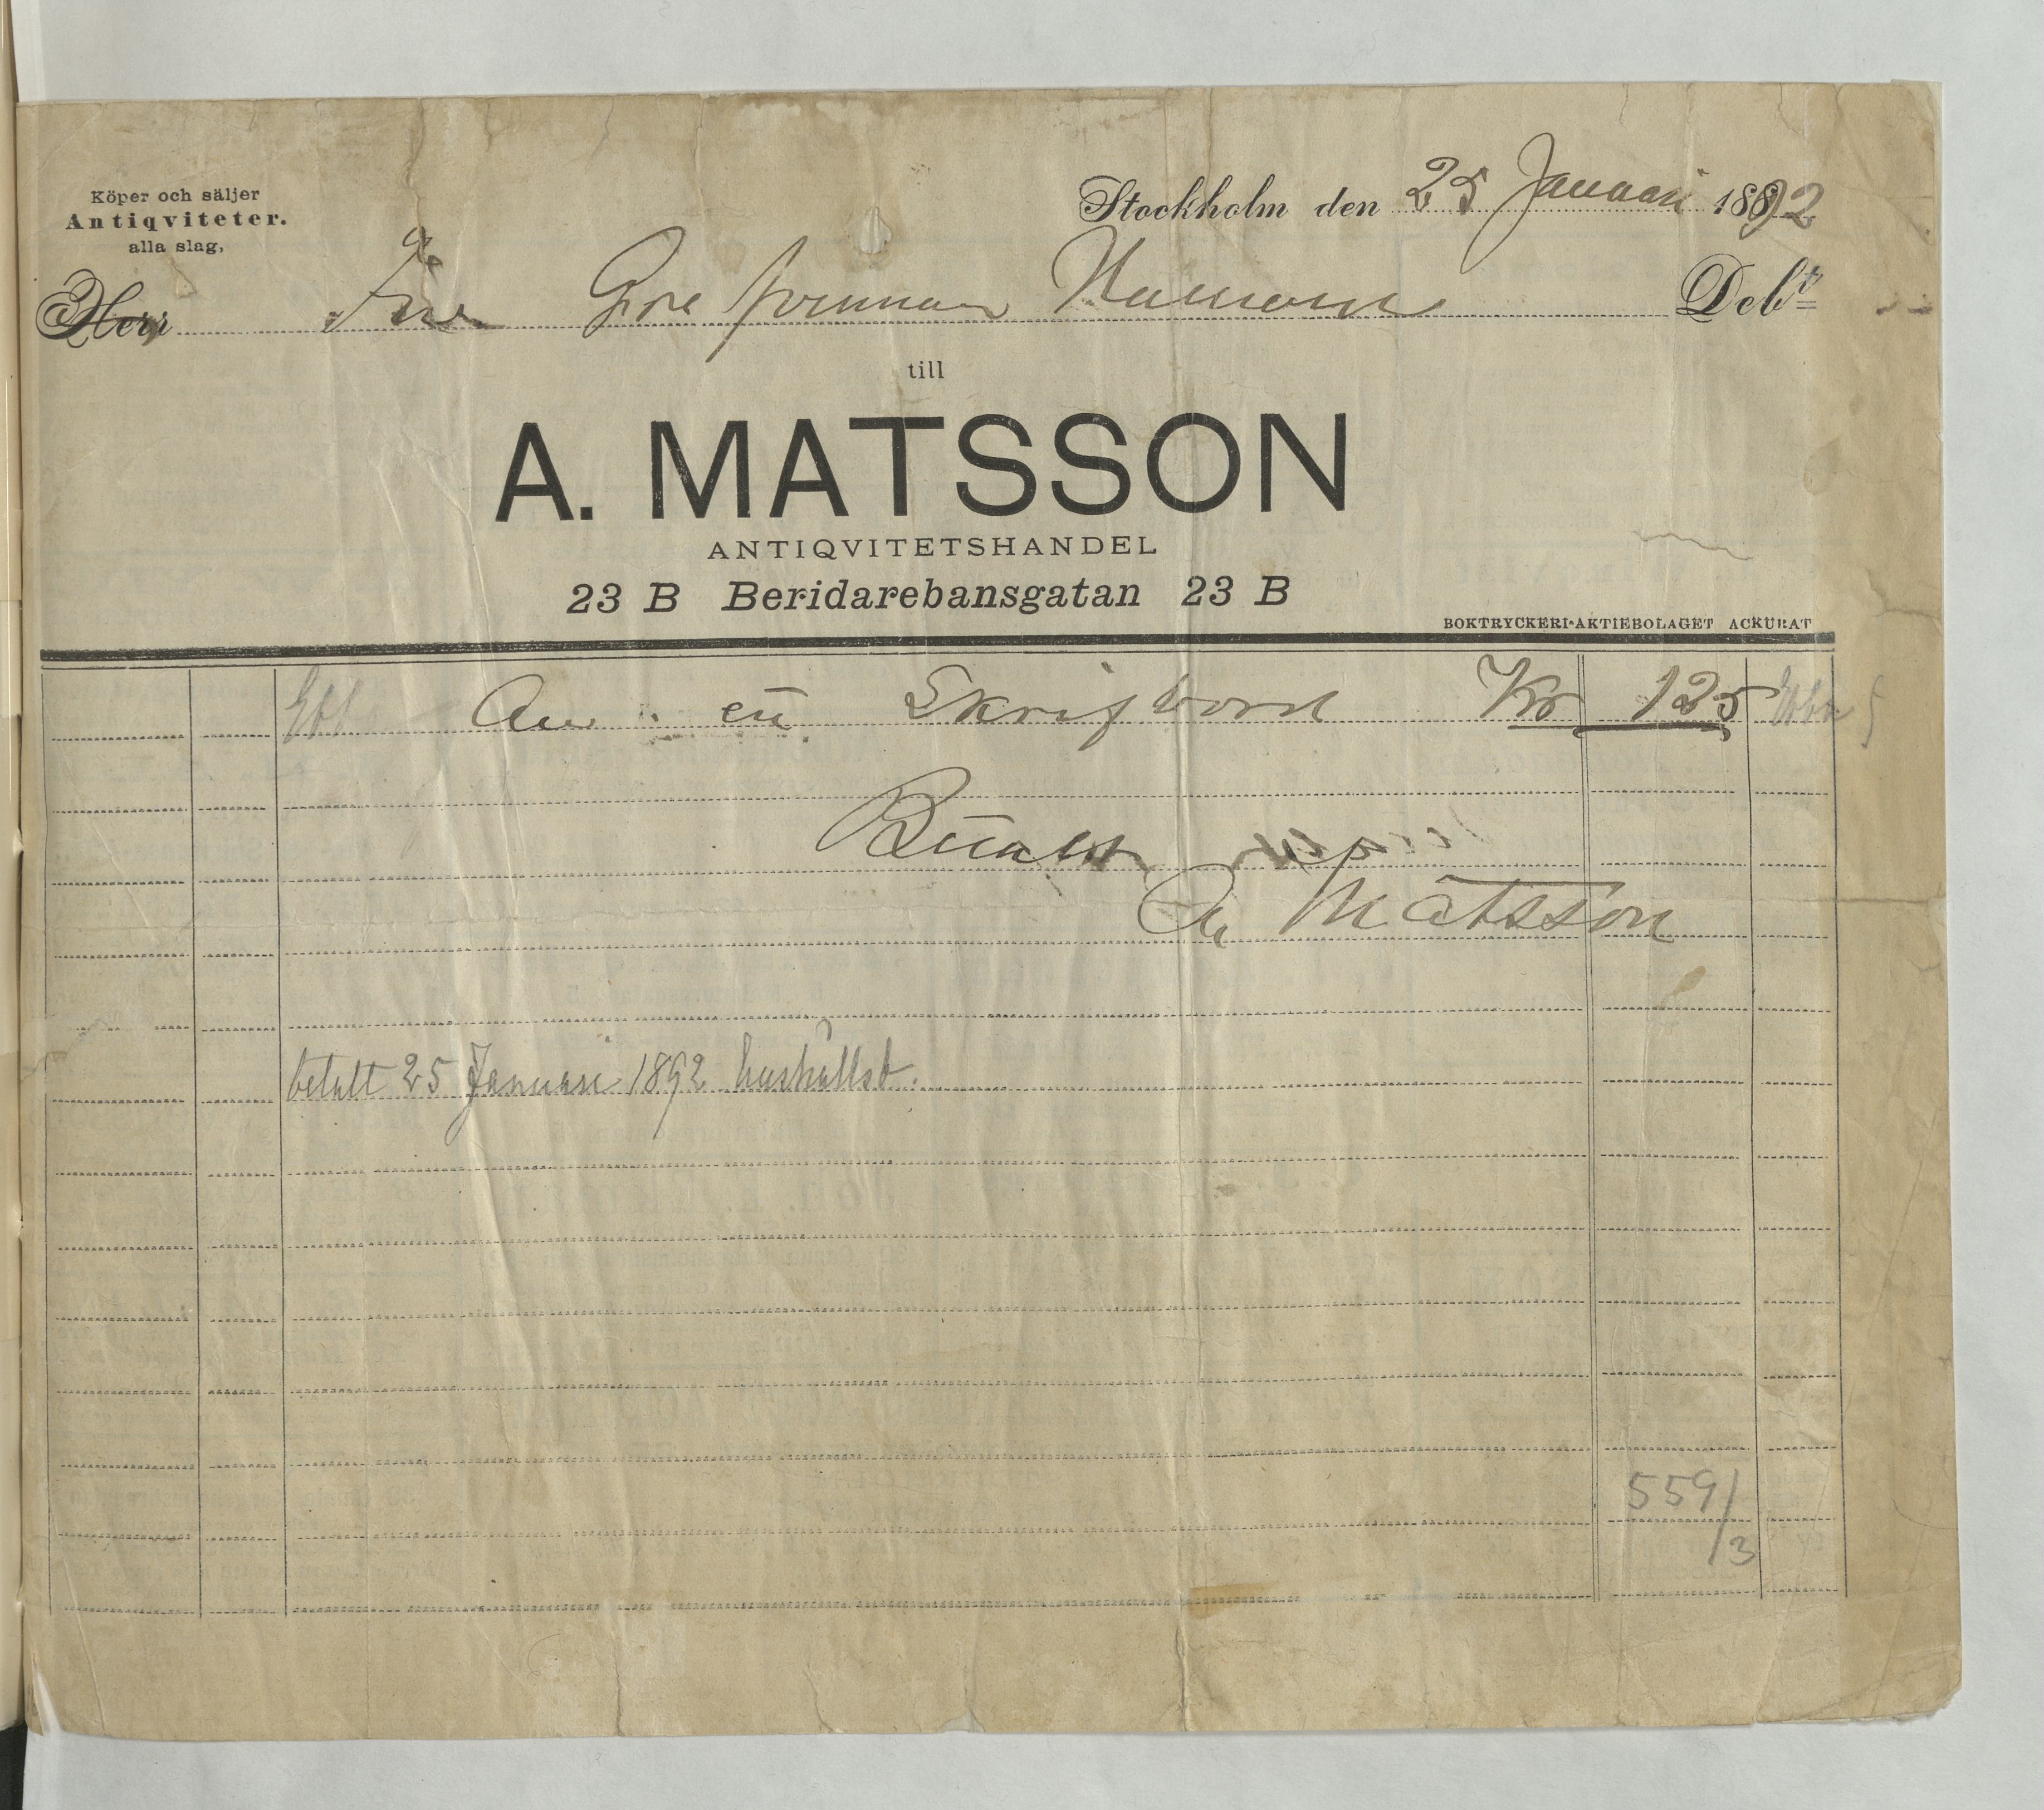 Köper och säljer
Antiqviteter.
alla slag,
Stockholm den 25 Januari 1892
Herr Debt
till
A. MATSSON
ANTIQVITETSHANDEL
23 B Beridarebansgatan 23 B
BOKTRYCKERI-AKTIEBOLAGET ACKURAT
en Skrifbord Kr 125
A Matsson
betalt 25 Januari 1892 hushållsb.
559/
/3